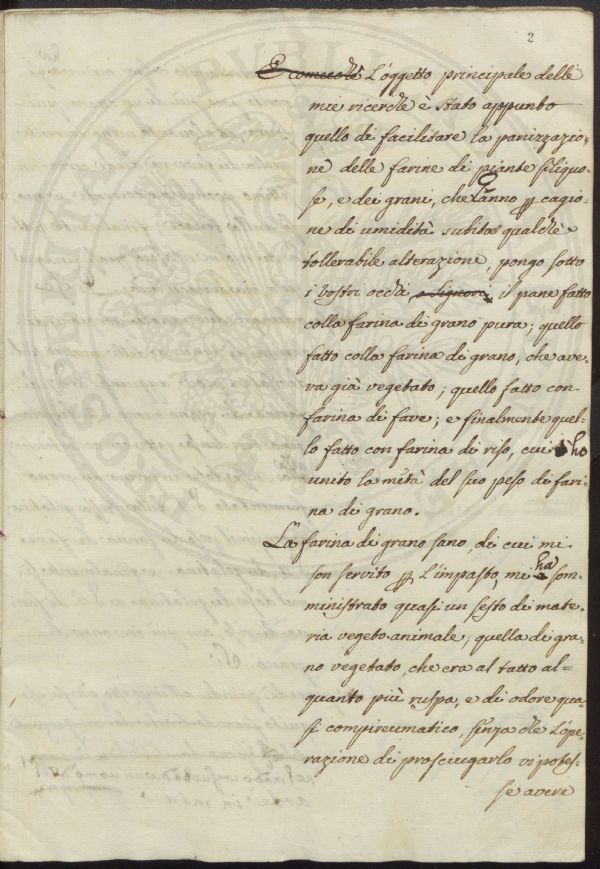 2
E comecchè L'oggetto principale delle
mie ricerche è stato appunto
quello di facilitare la panizzazio=
ne delle farine di piante siliquo=
se, e dei grani, che hanno p cagio=
ne di umidità subita qualche
tollerabile alterazione, pongo sotto
i vostri occhi, o Signori, il pane fatto
colla farina di grano pura; quello
fatto colla farina di grano, che ave=
va già vegetato; quello fatto con
farina di fave; e finalmente quel=
lo fatto con farina di riso, cui ho
unito la metà del suo peso di fari=
na di grano.
La farina di grano sano, di cui mi
son servito p L'impasto, mi ha som=
ministrato quasi un sesto di mate=
ria vegeto-animale; quella di gra=
no vegetato, che era al tatto al=
quanto più ruspa, e di odore qua=
si empireumatico, senza che L'ope=
razione di prosciugarlo vi potes=
se avere